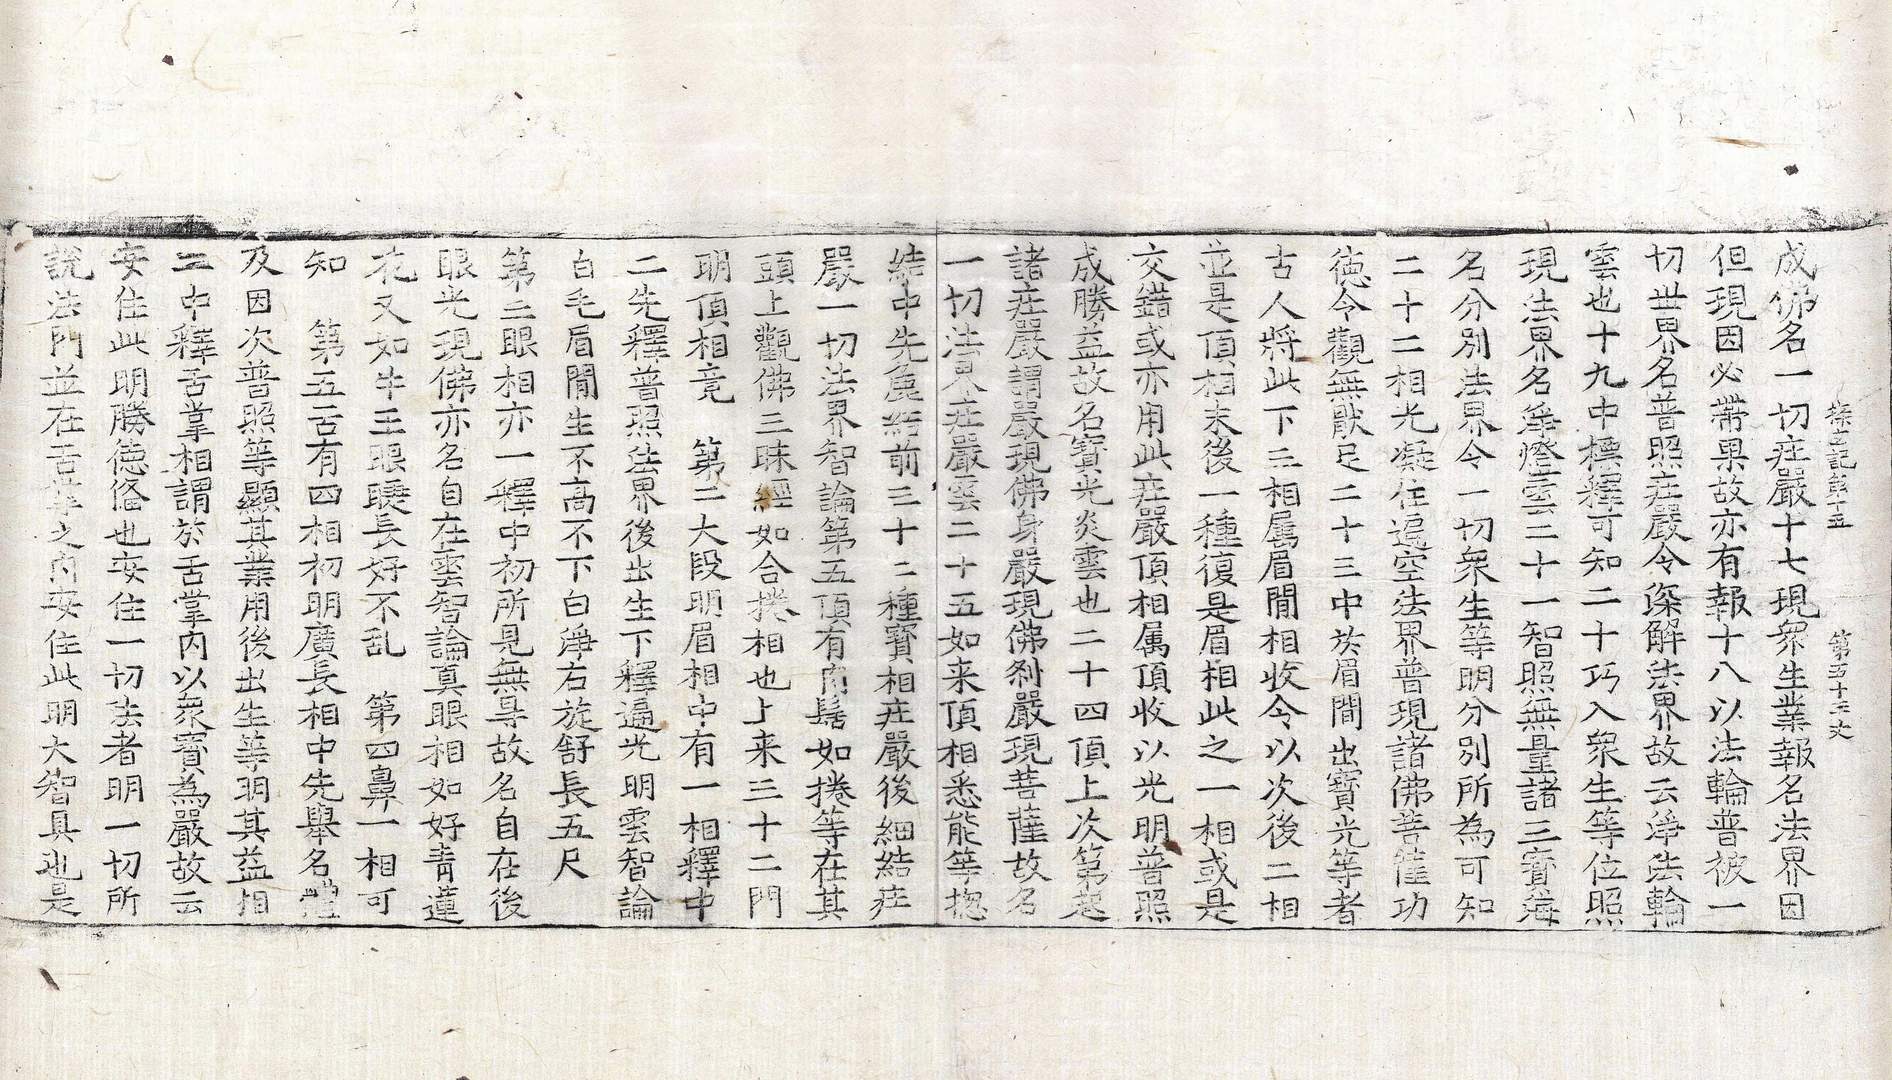 探玄記第十五　第五十三丈
成佛名一切庄嚴十七現衆生業報名法界因
但現因必帶果故亦有報十八以法輪普被一
切世界名普照庄嚴令深解法界故云淨法輪
雲也十九中標釋可知二十巧入衆生等位照
現法界名淨燈雲二十一智照無量諸三寶海
名分別法界令一切衆生等明分別所為可知
二十二相光凝住遍空法界普現諸佛菩薩功
徳令觀無猒足二十三中於眉間出寶光等者
古人將此下三相属眉間相收令以次後二相
並是頂相末後一種復是眉相此之一相或是
交錯或亦用此庄嚴頂相属頂收以光明普照
成勝益故名寶光炎雲也二十四頂上次第起
諸庄嚴謂嚴現佛身嚴現佛刹嚴現菩薩故名
一切法界庄嚴雲二十五如来頂相悉能等揔
結中先㑹結前三十二種寶相庄嚴後細結庄
嚴一切法界智論第五頂有肉髻如捲等在其
頭上觀佛三昧經如合捲相也上来三十二門
明頂相竟　第二大段明眉相中有一相釋中
二先釋普照法界後出生下釋遍光明雲智論
白毛眉間生不高不下白淨右旋舒長五尺
第三眼相亦一釋中初所見無㝵故名自在後
眼光現佛亦名自在雲智論真眼相如好青蓮
花又如牛王眼䀹長好不乱　第四鼻一相可
知　第五舌有四相初明廣長相中先舉名體
及因次普照等顯其業用後出生等明其益相
二中釋舌掌相謂於舌掌内以衆寶為嚴故云
安住此明勝徳俻也安住一切法者明一切所
說法門並在舌掌之内安住此明大智具也是